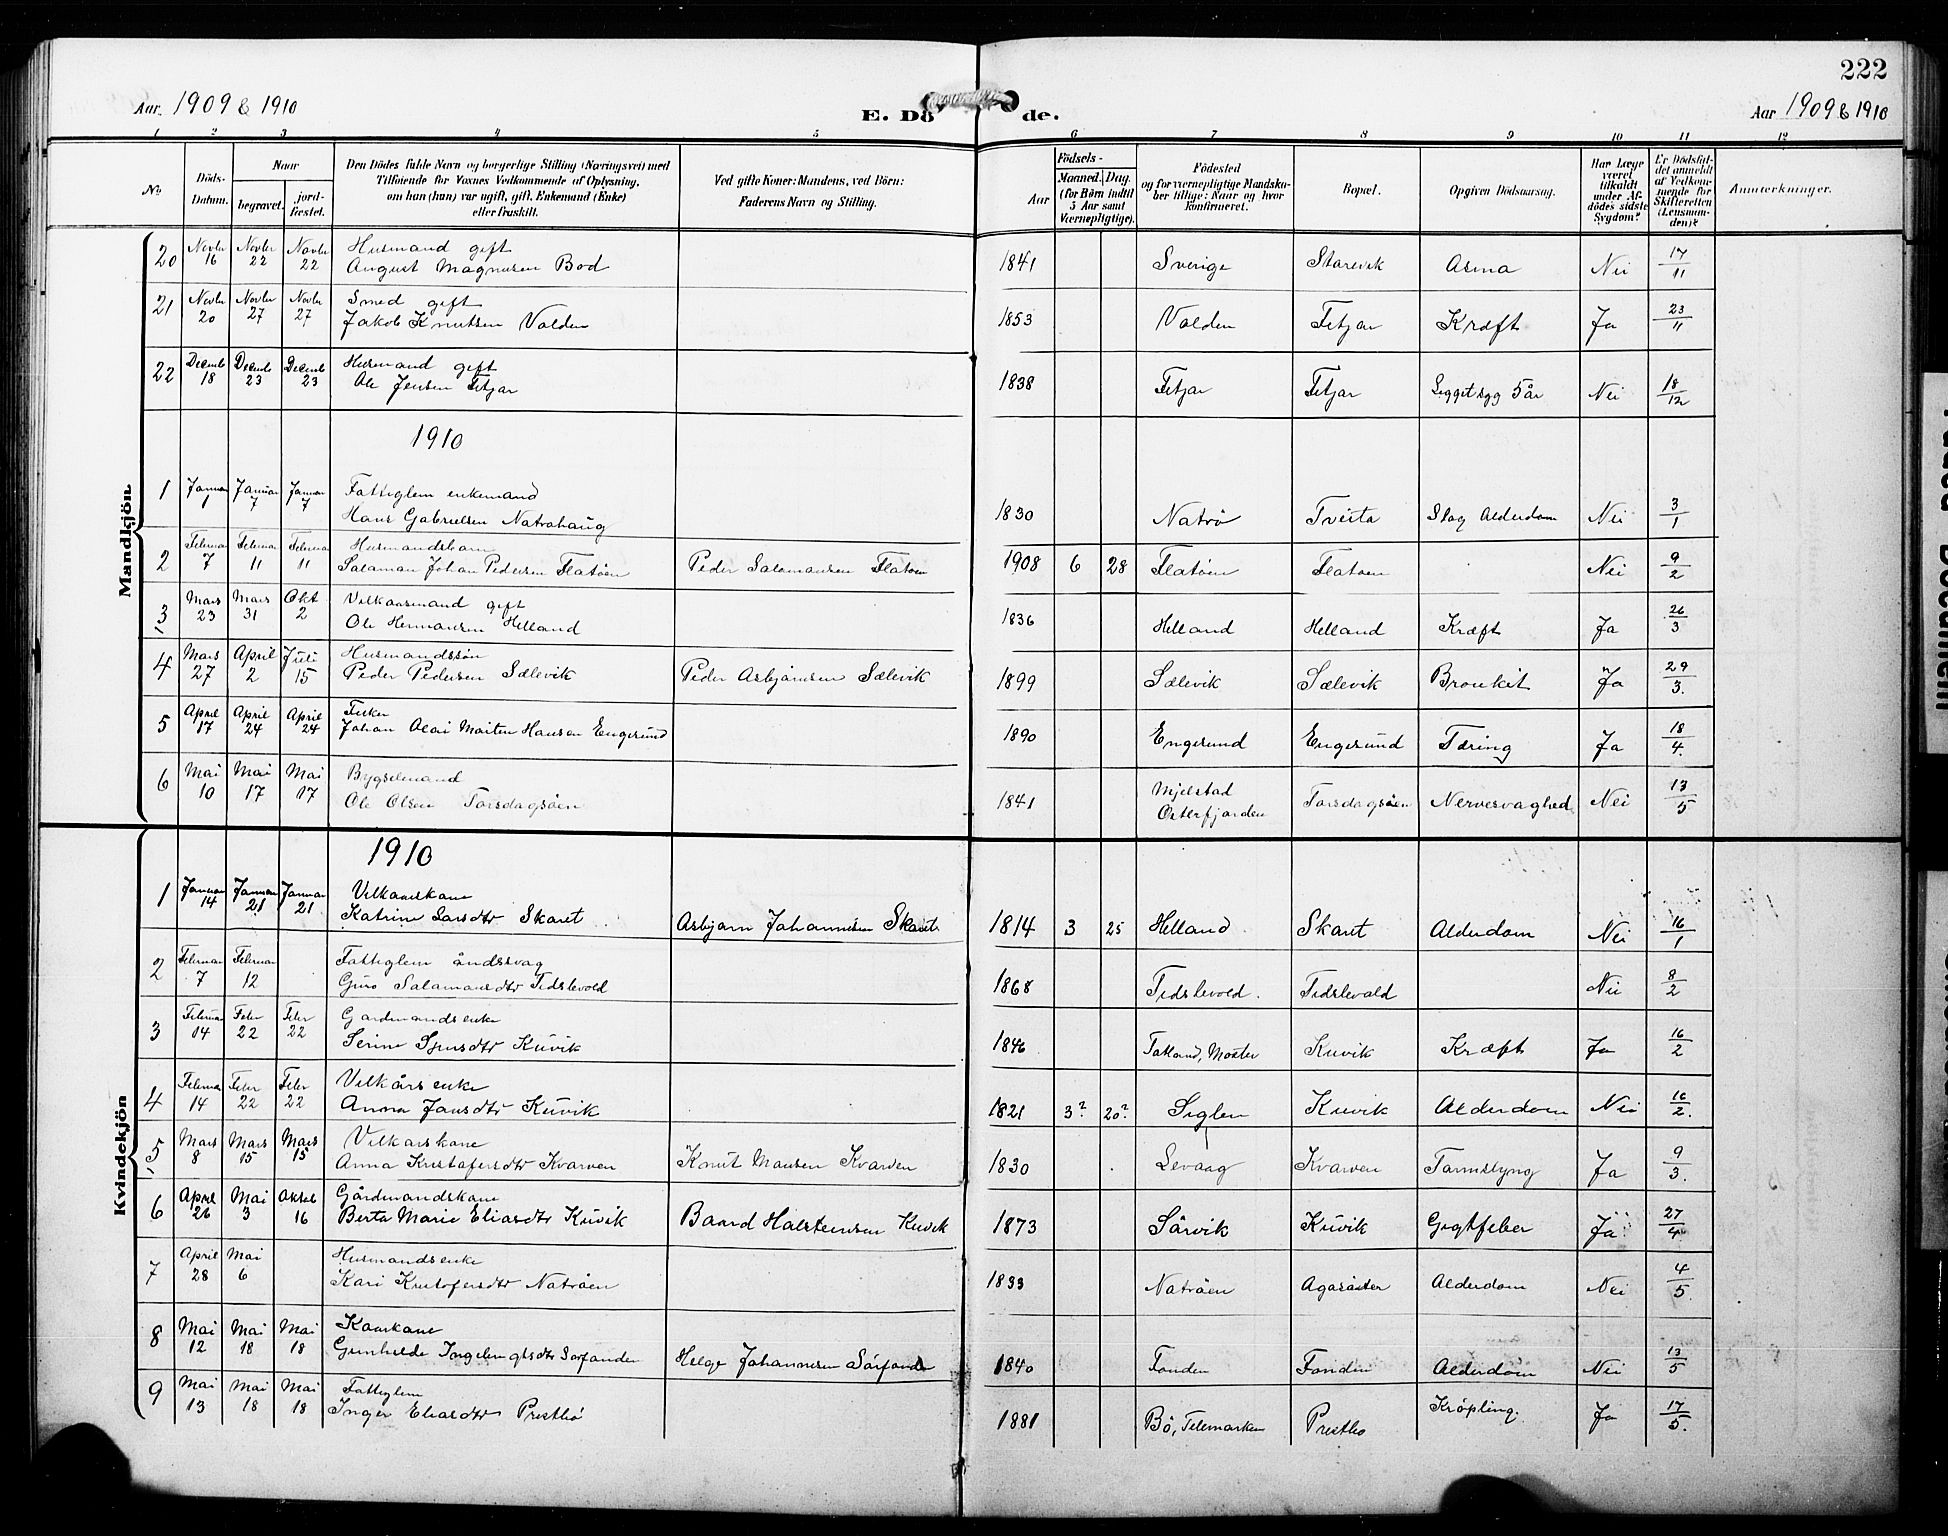 222
Aar 1909 & 1910 E. Dö de. Aar 1909 & 1910
1 2 3 4 5 6 7 8 9 10 11 12
No. Döds-Datum. Naar begravet. jord-fæstet. Den Dödes fulde Navn og borgerlige Stilling (Næringsvei) med Tilföiende for Voxnes Vedkommende af Oplysning, om han (hun) var ugift, gift, Enkemand (Enke) eller fraskilt. Ved gifte Koner: Mandens, ved Börn: Faderens Navn og Stilling. Födsels- Aar Maaned. Dag. (for Börn indtil 5 Aar samt Værnepligtige). Födested og for værnepligtige Mandskaber tillige: Naar og hvor konfirmeret. Bopæl. Opgiven Dödsaarsag. Har Læge været tilkaldt under Afdödes sidste Sygdom? Er Dödsfaldet anmeldt af Vedkommende for Skifteretten (Lensmanden)? Anmærkninger.
Mandkjön
20 Novbr 16 Novbr 22 Novbr 22 Husmand gift
August Magnusen Bod 1841 Sverige Starevik Asma Nei 17/11
21 Novbr 20 Novbr 27 Novbr 27 Smed gift
Jakob Knutsen Valden 1853 Valden Fitjar Kræft Ja 23/11
22 Decemb 18 Decemb 23 Decemb 23 Husmand gift
Ole Jensen Fitjar 1838 Fitjar Fitjar Ligget syg 5 år Nei 18/12
1910
1 Januar 1 Januar 7 Januar 7 Fattiglem enkemand
Hans Gabrielsen Natrøhaug 1830 Natrø Tveita Slag Alderdom Nei 3/1
2 Februar 7 Februar 11 Februar 11 Husmandsbarn
Salamon Johan Pedersen Flatøen Peder Salamonsen Flatøen 1908 6 28 Flatøen Flatøen Nei 9/2
3 Mars 23 Mars 31 Okt 2 Vilkaarsmand gift
Ole Hermansen Helland 1836 Helland Helland Kræft Ja 26/3
4 Mars 27 April 2 Juli 15 Husmandssøn
Peder Pedersen Sælevik Peder Asbjørnsen Sælevik 1899 Sælevik Sælevik Bronkit Ja 29/3.
5 April 17 April 24 April 24 Fisker
Johan Olai Marten Hansen Engesund 1890 Engesund Engesund Tæring Ja 18/4.
6 Mai 10 Mai 17 Mai 17 Bygselmand
Ole Olsen Torsdagsøen 1841 Mjelstad Osterfjorden Torsdagsøen Nervesvaghed Nei 13/5
Kvindekjön
1910
1 Januar 14 Januar 21 Januar 21 Vilkaarskone
Katrine Larsdtr Skaret Asbjørn Johannesen Skaret 1814 3 25 Helland Skaret Alderdom Nei 16/1
2 Februar 7 Februar 12 Fattiglem åndssvag
Guro Salamonsdtr Tidslevold 1868 Tidslevold. Tidslevold Nei 8/2
3 Februar 14 Febr 22 Febr 22 Gårdmandsenke
Serine Kuvik 1846 Moster Kuvik Kræft Ja 16/2
4 Februar 14 Febr 22 Febr 22 Vilkårsenke
Anna Jansdtr Kuvik 1821 3? 20? Siglen Kuvik Alderdom Nei 16/2.
5 Mars 8 Mars 15 Mars 15 Vilkårskone
Anna Kristofersdtr Kvarven Knut Monsen Kvarven 1830 Levaag Kvarven Tarmslyng Ja 9/3.
6 April 26 Mai 3 Oktob 16 Gårdmandskone
Berta Marie Eliasdtr Kuvik Baard Halsteinsen Kuvik 1873 Sørvik Kuvik Gigtfeber Ja 27/4.
7 April 28 Mai 6 Husmandsenke
Kari Kristofersdtr Natrøen 1833 Natrøen Agasøster Alderdom Nei 4/5.
8 Mai 12 Mai 18 Mai 18 Kaarkone
Gunhilde Ingebrigtsdtr Sørfonden Helge Johannesen Sørfonde 1840 Fonden Fonden Alderdom Nei 13/5
9 Mai 13 Mai 18 Mai 18 Fattiglem
Inger Eliasdtr Prestbø 1881 Bø, Telemarken Prestbø Krøpling. Ja 17/5.